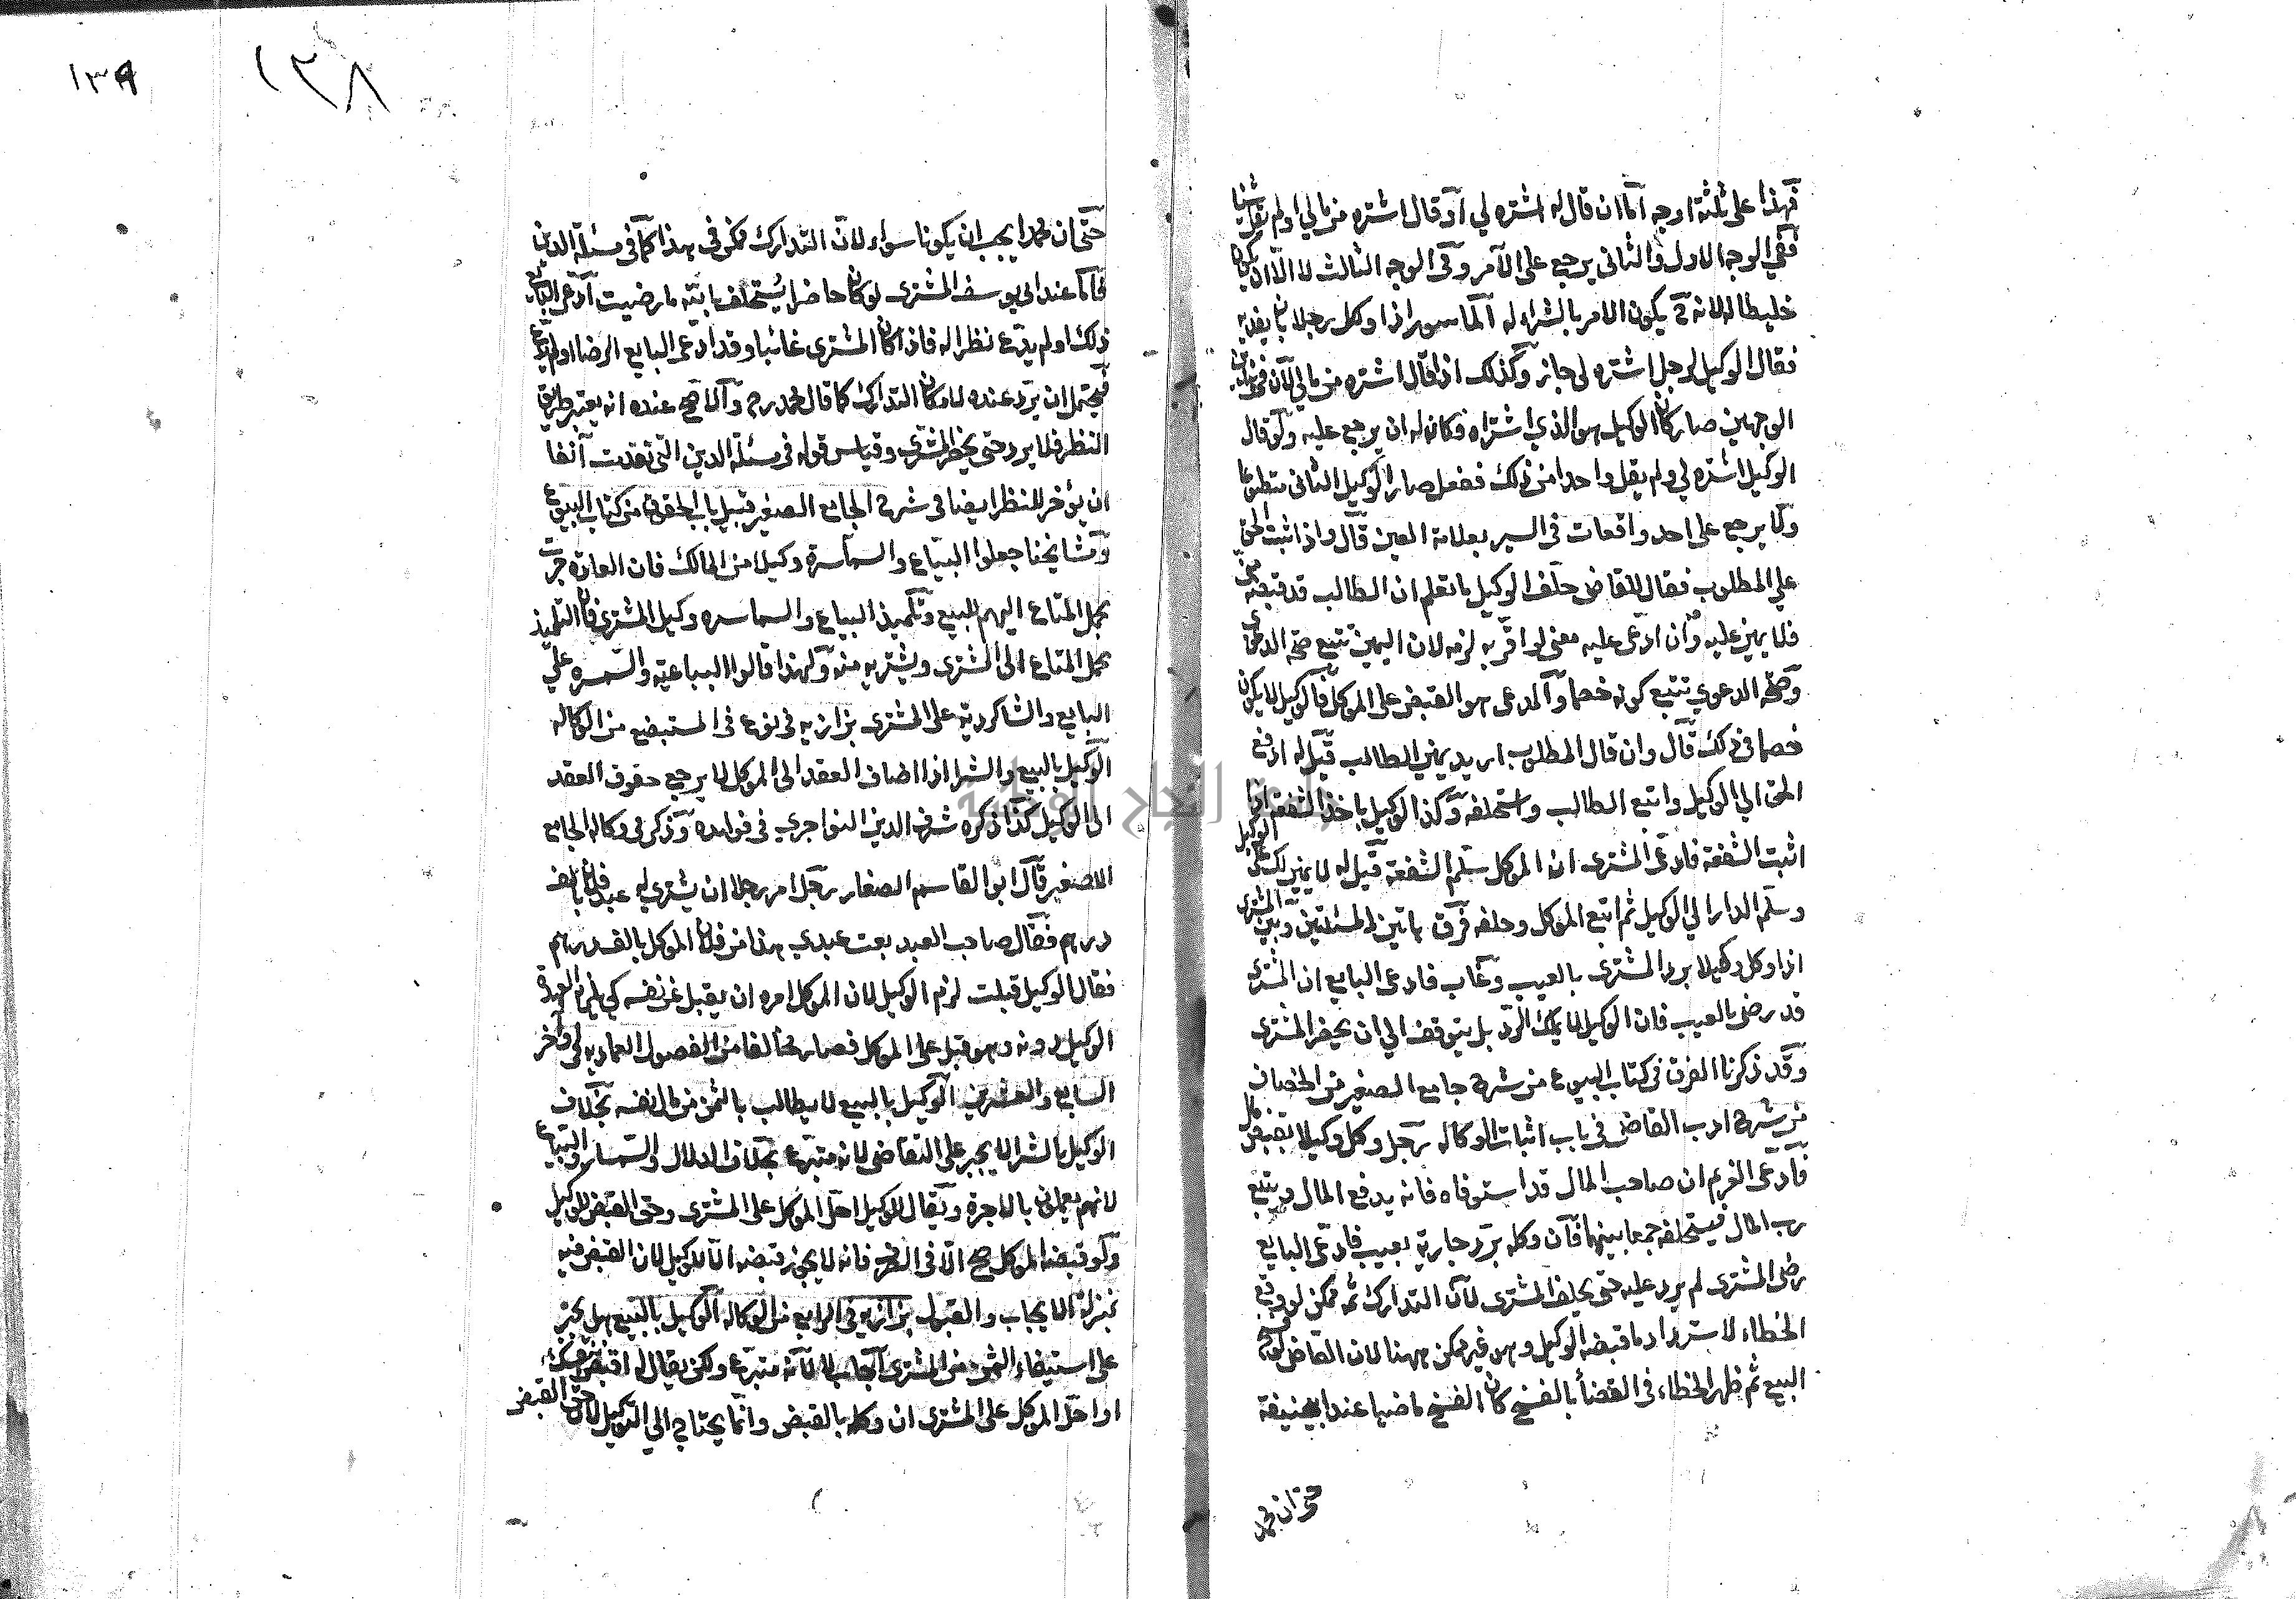 فهذا على ثلثة اوجه اما ان قال له اشتره لي او قال اشتره من مالي او لم يقل شيئا
ففي الوجه الاول والثاني يرجع على الآمر وفي الوجه الثالث لا الا ان يكون
خليطا له لانه ح يكون الامر بالشراء له المأمور اذا وكل رجلا بان يفديه
فقال الوكيل لرجل اشتره لي جاز وكذلك اذا قال اشتره من مالي لان في هذين
الوجهين صار كان الوكيل هو الذي اشتراه فكان له ان يرجع عليه ولو قال
الوكيل اشتره لي ولم يقل واحدا من ذلك ففعل صار الوكيل الثاني متطوعا
ولا يرجع على احد واقعات في السير بعلامة العين قال واذا اثبت الحق
على المطلوب فقال للقاضي حلف الوكيل ما تعلم ان الطالب قد قبضه مني
فلا يمين عليه وان ادعى عليه معنى لو اقر به لزمه لان اليمين تتبع صحة الدعوى
وصحة الدعوي تتبع كونه خصما والمدعى هو القبض على الموكل فالوكيل لا يكون
خصما في ذلك قال وان قال المطلوب اريد يمين الطالب قيل له ادفع
الحق الى الوكيل واتبع الطالب واستحلفه وكذا الوكيل باخذ الشفعة اذا
اثبت الشفعة فادعى المشترى ان الموكل سلم الشفعة قيل له لا يمين لك على الوكيل
وسلم الدار الي الوكيل ثم اتبع الموكل وحلفه فرق هاتين المسئلتين وبين المشترى
اذا وكل وكيلا برد المشترى بالعيب وغاب فادعى البايع ان المشترى
قد رضى بالعيب فان الوكيل لا يملك الرد بل يتوقف الي ان يحضر المشترى
وقد ذكرنا الفرق في كتاب البيوع من شرح جامع الصغير من الخصاف
من شرح ادب القاضي في باب اثبات الوكالة رجل وكل وكيلا بقبض مال
فادعى الغريم ان صاحب المال قد استوفاه فانه يدفع المال ويتبع
رب المال فيستحلفه جمعا بينهما فان وكله برد جارية بعيب فادعى البايع
رضى المشترى لم يرد عليه حتى يحلف المشترى لان التدارك ثمه ممكن لو وقع
الخطاء لاسترداد ما قبضه الوكيل وهو غير ممكن ههنا لان القاضي لو فسخ
البيع ثم ظهر الخطاء في القضأ بالفسخ كان الفسخ ماضيا عند ابيحنيفة
حتى ان محمدا
١٣٨
١٣٩
حتى ان محمدا يجب ان يكونا سواء لان التدارك ممكن في هذا كما في مسئلة الدين
فاما عند ابي يوسف المشترى لو كان حاضرا يستحلف بالله ما رضيت ادعى البايع
ذلك او لم يدع نظرا له فاذا كان المشترى غائبا وقد ادعى البايع الرضا او لم يدع
فيحتمل ان يرد عنده لامكان التدارك كما قال محمد رح والاصح عنده انه يعتبر طريق
النظر فلا يرد حتى يحضر المشترى وقياس قوله في مسئلة الدين التي تقدمت آنفا
ان يؤخر للنظر ايضا في شرح الجامع الصغير قبيل باب الحقوق من كتاب البيوع
ومشايخنا جعلوا البياع والسماسرة وكيلا من المالك فان العادة جرت
بحمل المتاع اليهم للبيع وتلميذ البياع والسماسره وكيل المشترى فان التلميذ
يحمل المتاع الى المشترى ويشتريه منه ولهذا قالوا البياعيه والسمسره علي
البايع والشاكردية على المشترى بزازيه في نوع في المستبضع من الوكاله
الوكيل بالبيع والشرا اذا اضاف العقد الى الموكل لا يرجع حقوق العقد
الى الوكيل كذا ذكره شرف الدين النواجري في فوايده وذكر في وكالة الجامع
الاصغير قال ابو القاسم الصفار رجل امر رجلا ان يشتري له عبد فلان بالف
درهم فقال صاحب العبد بعت عبدي هذا من فلان الموكل بالف درهم
فقال الوكيل قبلت لزم الوكيل لان الموكل امره ان يقبل عن نفسه كي يلزم العهدة
الوكيل دونه وهو قبل على الموكل فصار مخالفا من الفصول العمادية في آخر
السابع والعشرين الوكيل بالبيع لا يطالب بالثمن من مال نفسه بخلاف
الوكيل بالشرا لا يجبر على التقاضى لانه متبرع بخلاف الدلال والسمسار والبياع
لانهم يعملون بالاجرة ويقال للوكيل احل الموكل على المشترى وحق القبض للوكيل
ولو قبضه الموكل صح الا في الصرف فانه لا يجوز قبضه الا للوكيل لان القبض فيه
بمنزلة الايجاب والقبول بزازيه في الرابع من الوكالة الوكيل بالبيع هل يجبر
على استيفاء الثمن من المشترى اجاب لا لانه متبرع ولكن يقال له اقبض
او احل الموكل على المشترى ان وكله بالقبض وانما يحتاج الي التوكيل لان حق القبض
جامعة النجاح الوطنية